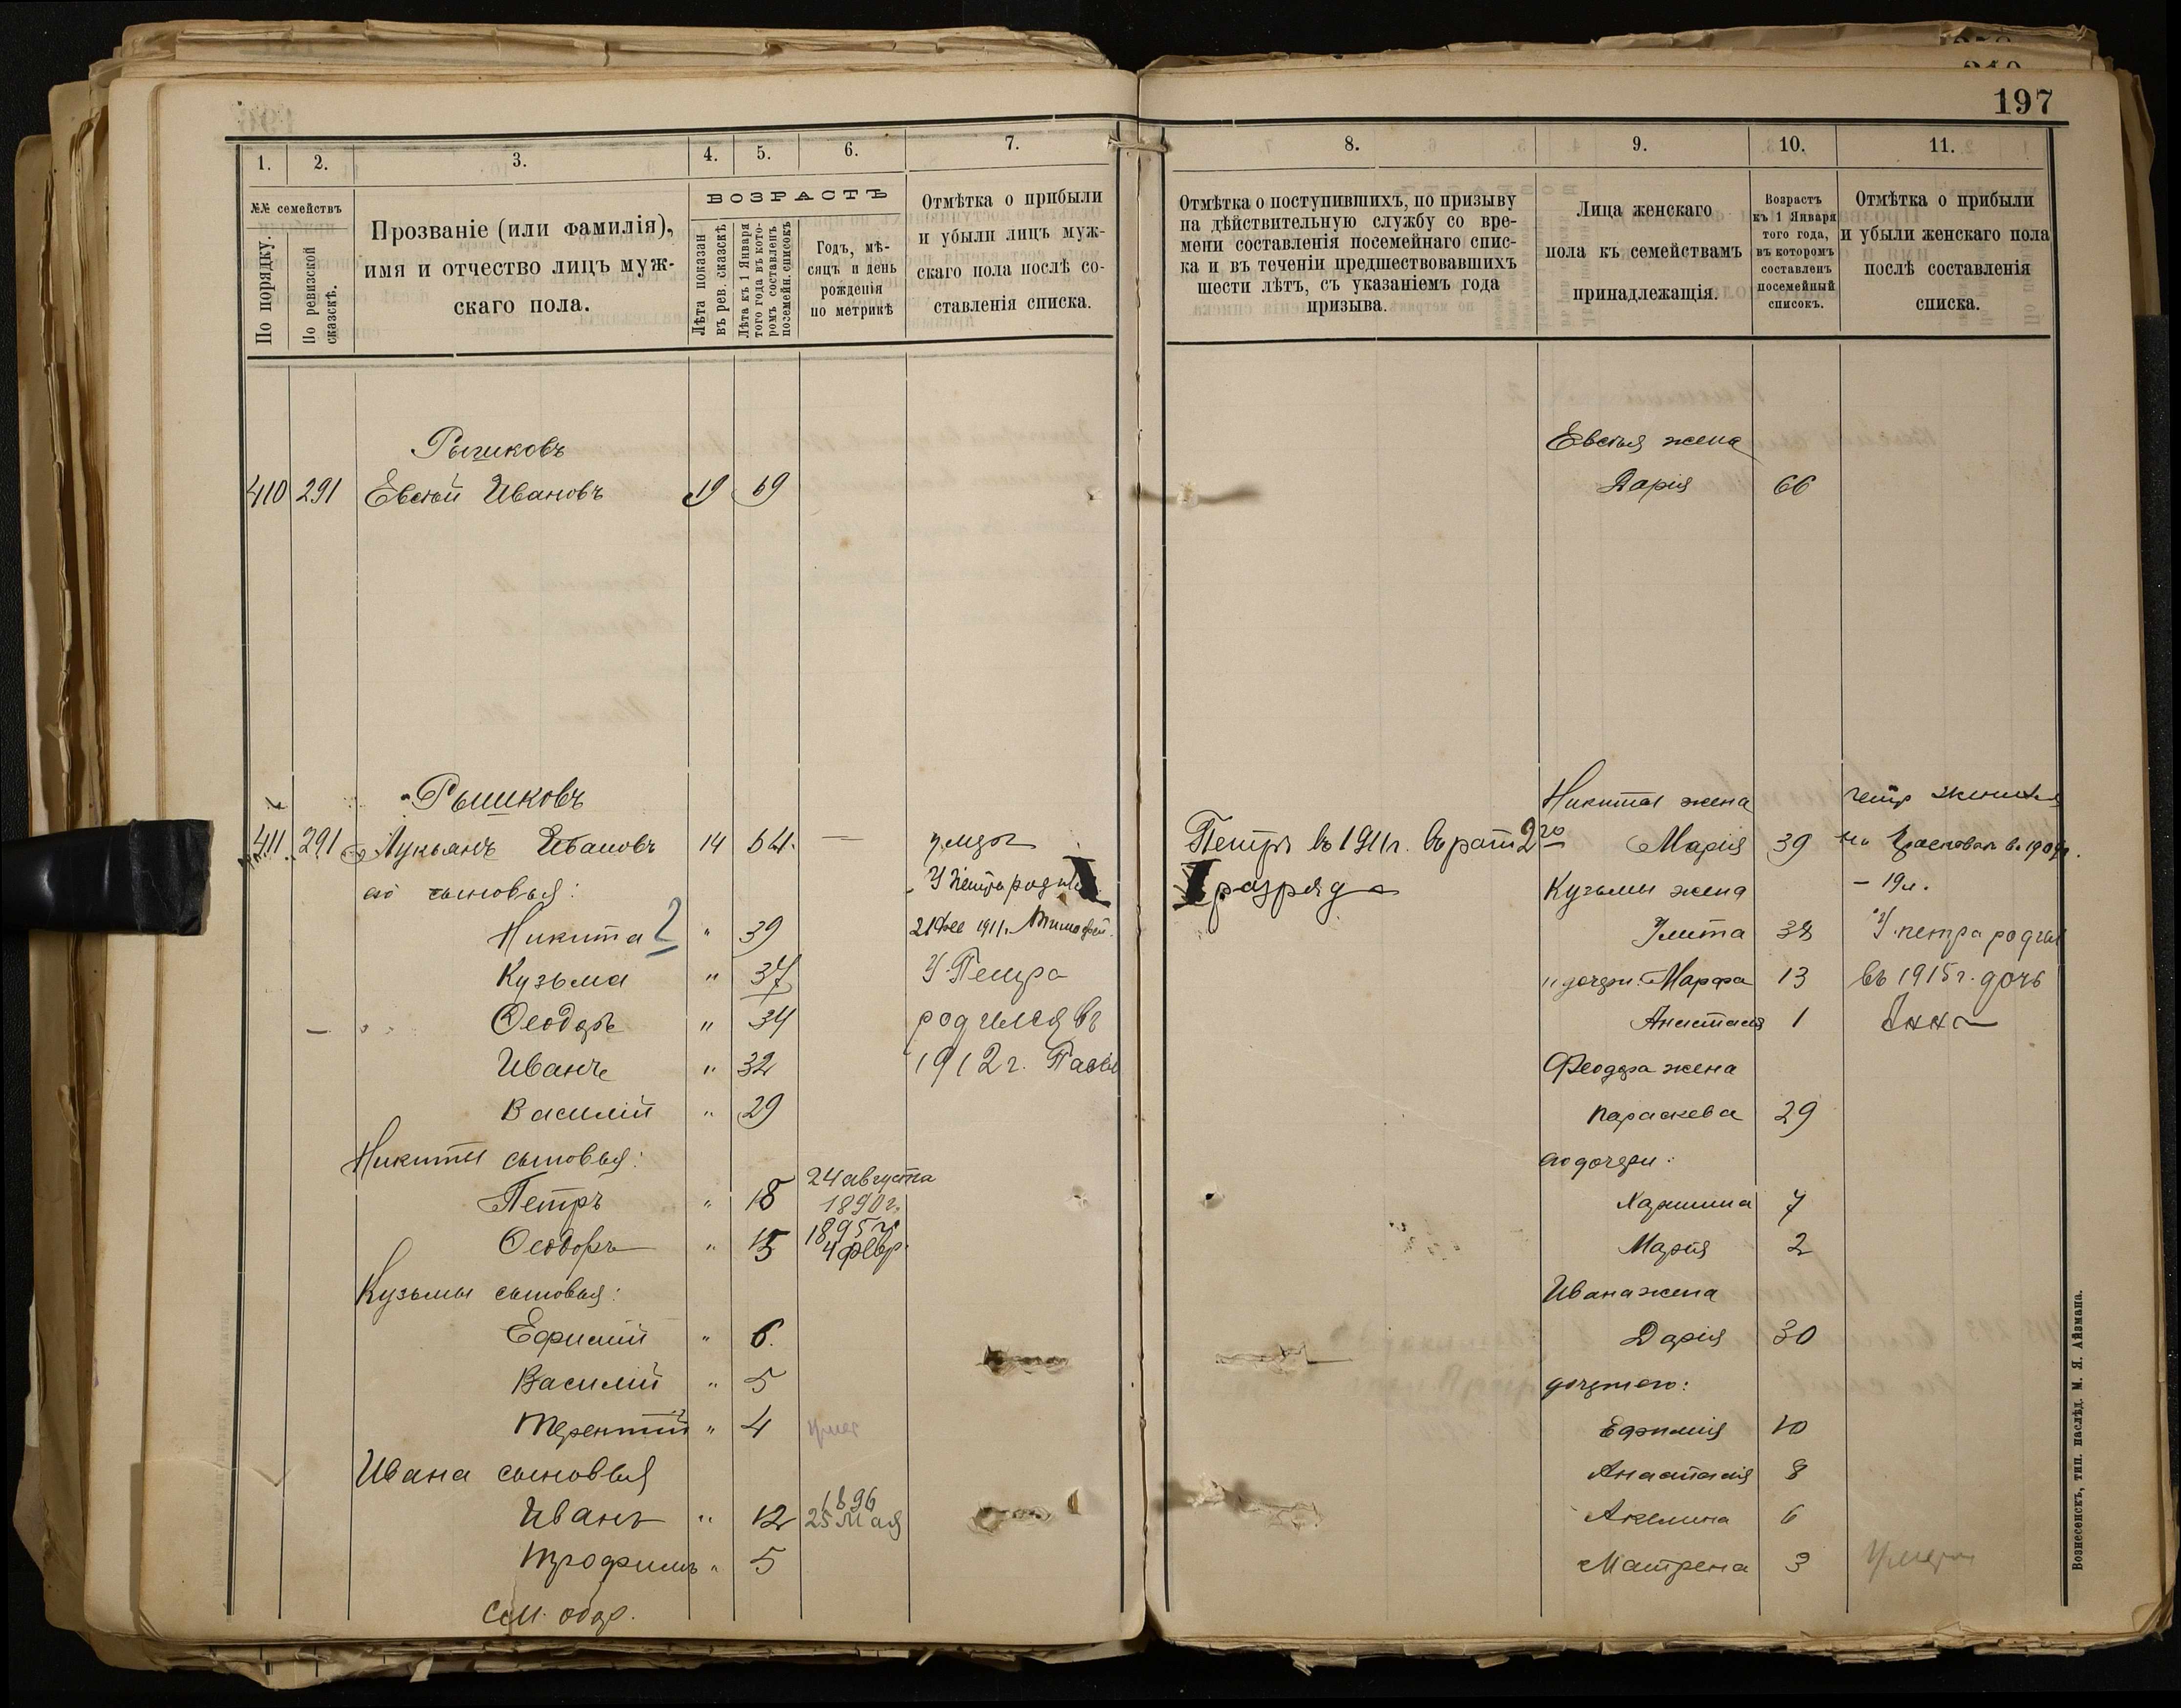 197
1.
2.
3.
4.
5.
6.
7.
№№ семействъ
По порядку.
По ревизской сказскѣ.
Прозваніе (или фамилія),
имя и отчество лицъ муж-
скаго пола.
ВОЗРАСТЪ
Лѣта показан
въ рев. сказскѣ
Лѣта къ 1 Января
того года въ кото-
ромъ составленъ
посемейн. списокъ
Годъ, мѣ-
сяцъ и день
рожденія
по метрикѣ
Отмѣтка о прибыли
и убыли лицъ муж-
скаго пола послѣ со-
ставленія списка.
Рышковъ
410 291 Евстѣй Ивановъ 19 69
Рышковъ
411 291 Лукьянъ Ивановъ 14 64. — умер
его сыновья: У Петра родился
Никита 2 " 39 21 Дек 1911г. Тимофей.
Кузьма " 37 У Петра
Ѳеодоръ " 34 родился въ
Иванъ " 32 1912г.
Василій " 29
Никиты сыновья:
24 августа
Петръ " 18 1890г.
1895г.
Ѳеодоръ " 15 4 февр.
Кузьмы сыновья:
Ефимій " 6.
Василій " 5
Терентій " 4 умер
Ивана сыновья
1896
Иванъ " 12 25 Мая
Трофимъ " 5
См. обор.
8.
9.
10.
11.
Отмѣтка о поступившихъ, по призыву
на дѣйствительную службу со вре-
мени составленія посемейнаго спис-
ка и въ теченіи предшествовавшихъ
шести лѣтъ, съ указаніемъ года
призыва.
Лица женскаго
пола къ семействамъ
принадлежащія.
Возрастъ
къ 1 Января
того года,
въ которомъ
составленъ
посемейный
списокъ.
Отмѣтка о прибыли
и убыли женскаго пола
послѣ составленія
списка.
Евстѣя жена
Дарія 66
Никиты жена женился
Петръ въ 1911г. въ рат 2го Марія 39 на
разряда Кузьмы жена - 19л.
Улита 38 У петра родил
" дочери: Марфа 13 въ 1915г. дочь
Анастасія 1 Анна
Феодора жена
Параскева 29
его дочери:
7
Марія 2
Ивана жена
Дарія 30
дочери его:
Ефимія 10
Анастасія 8
Акелина 6
Матрена 3 Умерла
Вознесенскъ, тип. наслѣд. М. Я. Айзмана.